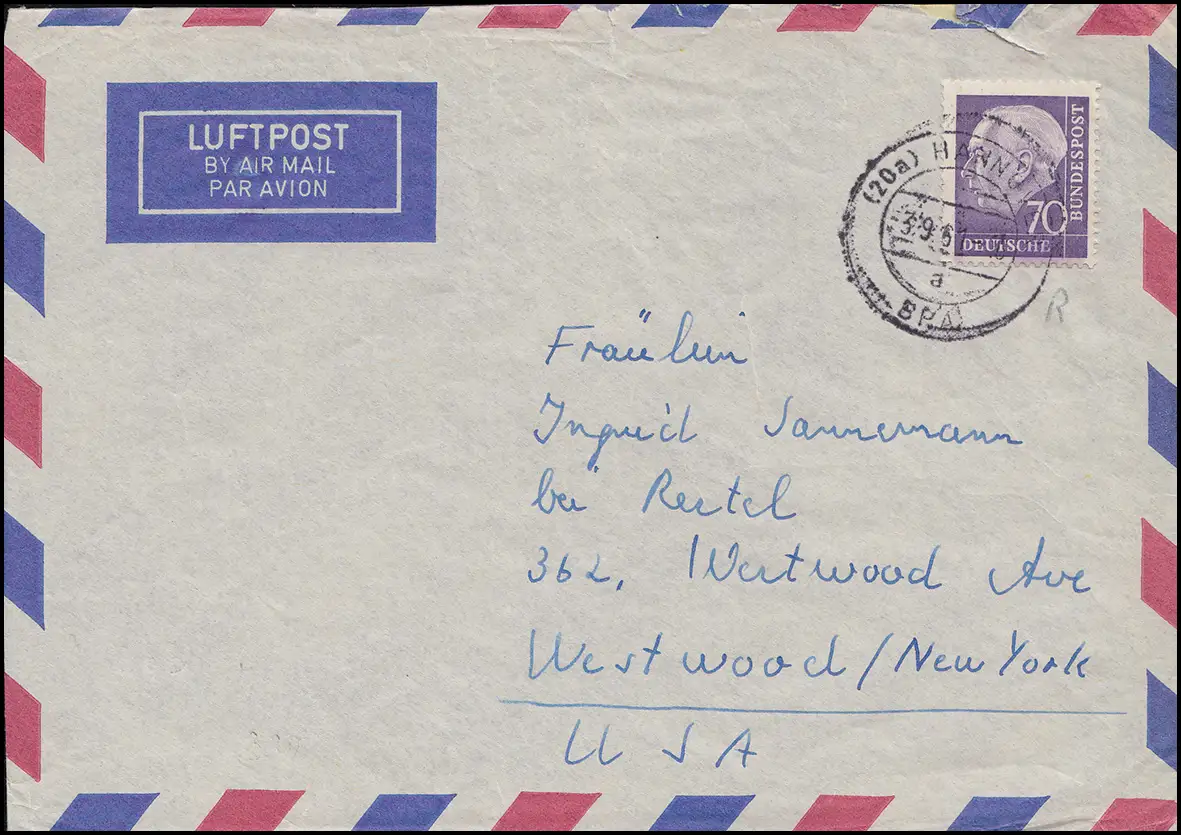 LUFTPOST
BY AIR MAIL
PAR AVION
(20a) HANNO
a
BPA
70
DEUTSCHE
BUNDESPOST
R
Fräulein
Ingrid Sannemann
bei Restel
362, Westwood Ave
Westwood / New York
USA